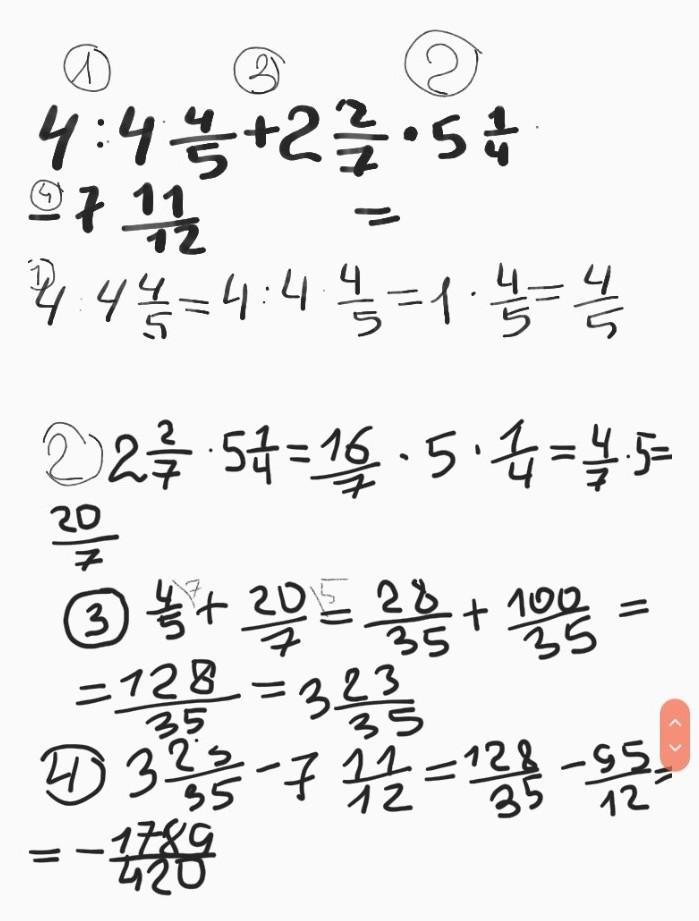 ① ③ ②
4 : 4 4/5 + 2 2/7 · 5 1/4
④ - 7 11/12 =
① 4 : 4 4/5 = 4 : 4 · 4/5 = 1 · 4/5 = 4/5
② 2 2/7 · 5 1/4 = 16/7 · 5 · 1/4 = 4/7 · 5 =
20/7
③ 4/5 \7 + 20/7 \5 = 28/35 + 100/35 =
= 128/35 = 3 23/35
④ 3 23/35 - 7 11/12 = 128/35 - 95/12 =
= - 1789/420